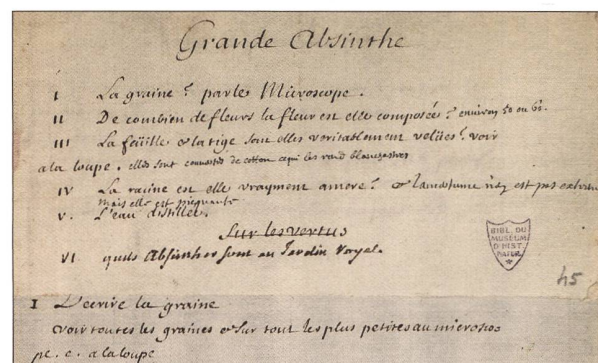 Grande Absinthe
I La graine ? par le Microscope.
II De combien de fleurs la fleur est elle composée ? environ 50 ou 60.
III La feüille & la tige sont elles veritablement velües ? voir
a la loupe. elles sont couvertes de cotton ce qui les rend blancheatres
IV La racine est elle vrayment amere ? & l'amertume n'ey est pas
mais elle est piequante
V. L'eau distillée.
Sur les vertus
VI quels Absinthes sont au Jardin Royal.
BIBL. DU
MUSÉUM
D'HIST.
NATUR.
45
I Décrire la graine
voir toutes les graines & sur tout les plus petites au microsco
pe. e. a la loupe